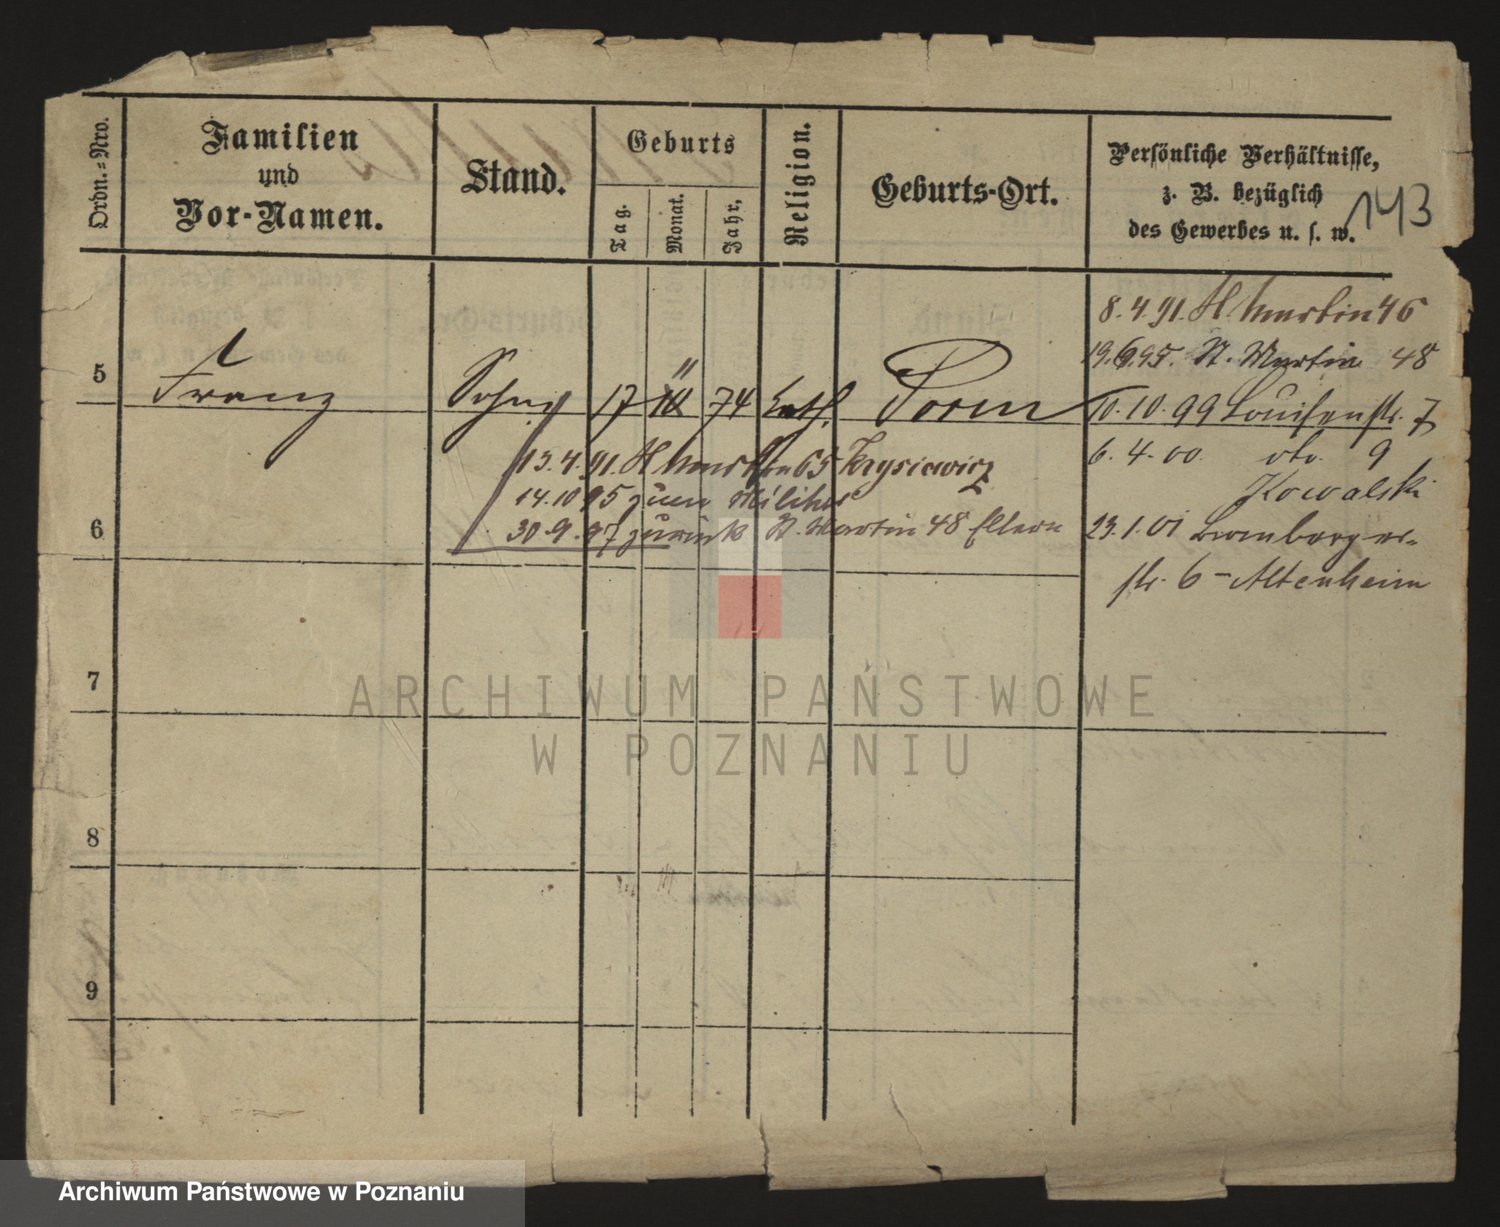 Ordn.=Nro.
Familien
und
Vor-Namen.
Stand.
Geburts
Tag.
Monat.
Jahr.
Religion.
Geburts-Ort.
Persönliche Verhältnisse,
z. B. bezüglich
des Gewerbes u. s. w.
143
8.4.91. St Martin 46
19.6.95. St. Martin 48
5 Franz Sohn 17 11 74 kath. Posen
10.10.99 Louisenstr. 7
13.4.91. St Martin 65 Krysiewicz
6.4.00. dto. 9
Kowalski
14.10.95 zum Militär
6
30.9.97 zurück St. Martin 48 Eltern
23.1.01
str. 6 - Altenheim
7
8
9
ARCHIWUM PAŃSTWOWE
W POZNANIU
Archiwum Państwowe w Poznaniu